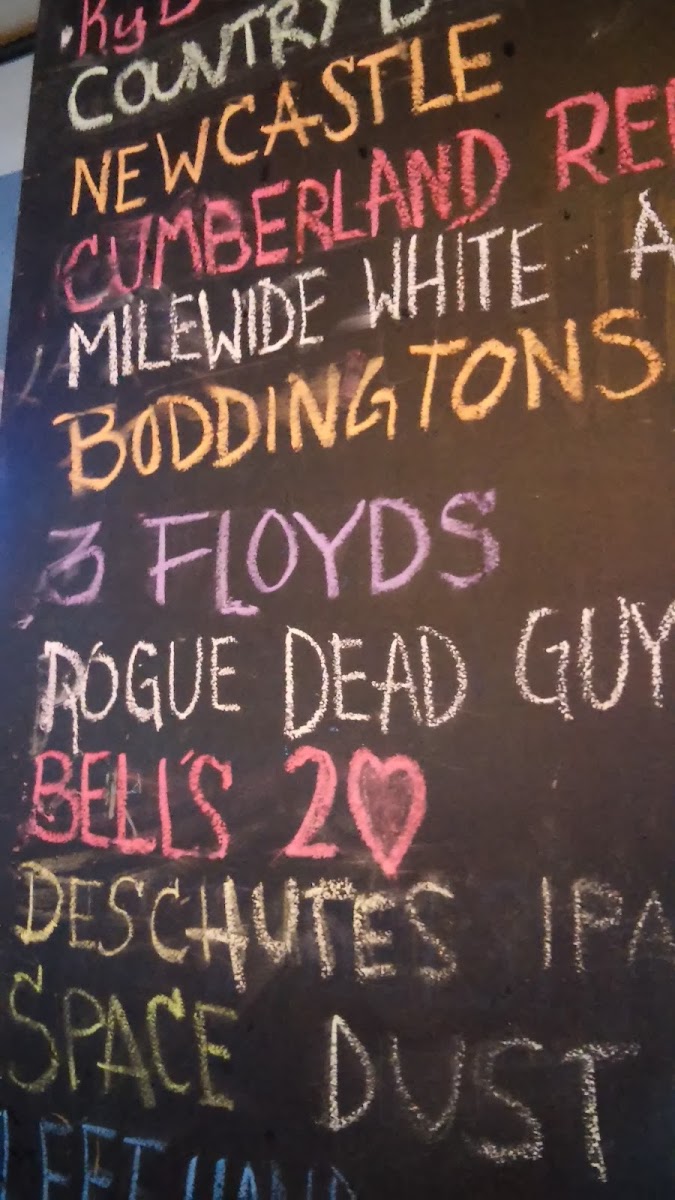 Ky
COUNTRY
NEWCASTLE
CUMBERLAND RED
MILEWIDE WHITE A
BODDINGTONS
3 FLOYDS
ROGUE DEAD GUY
BELL'S 2♥
DESCHUTES IPA
SPACE DUST
LEFT HAND